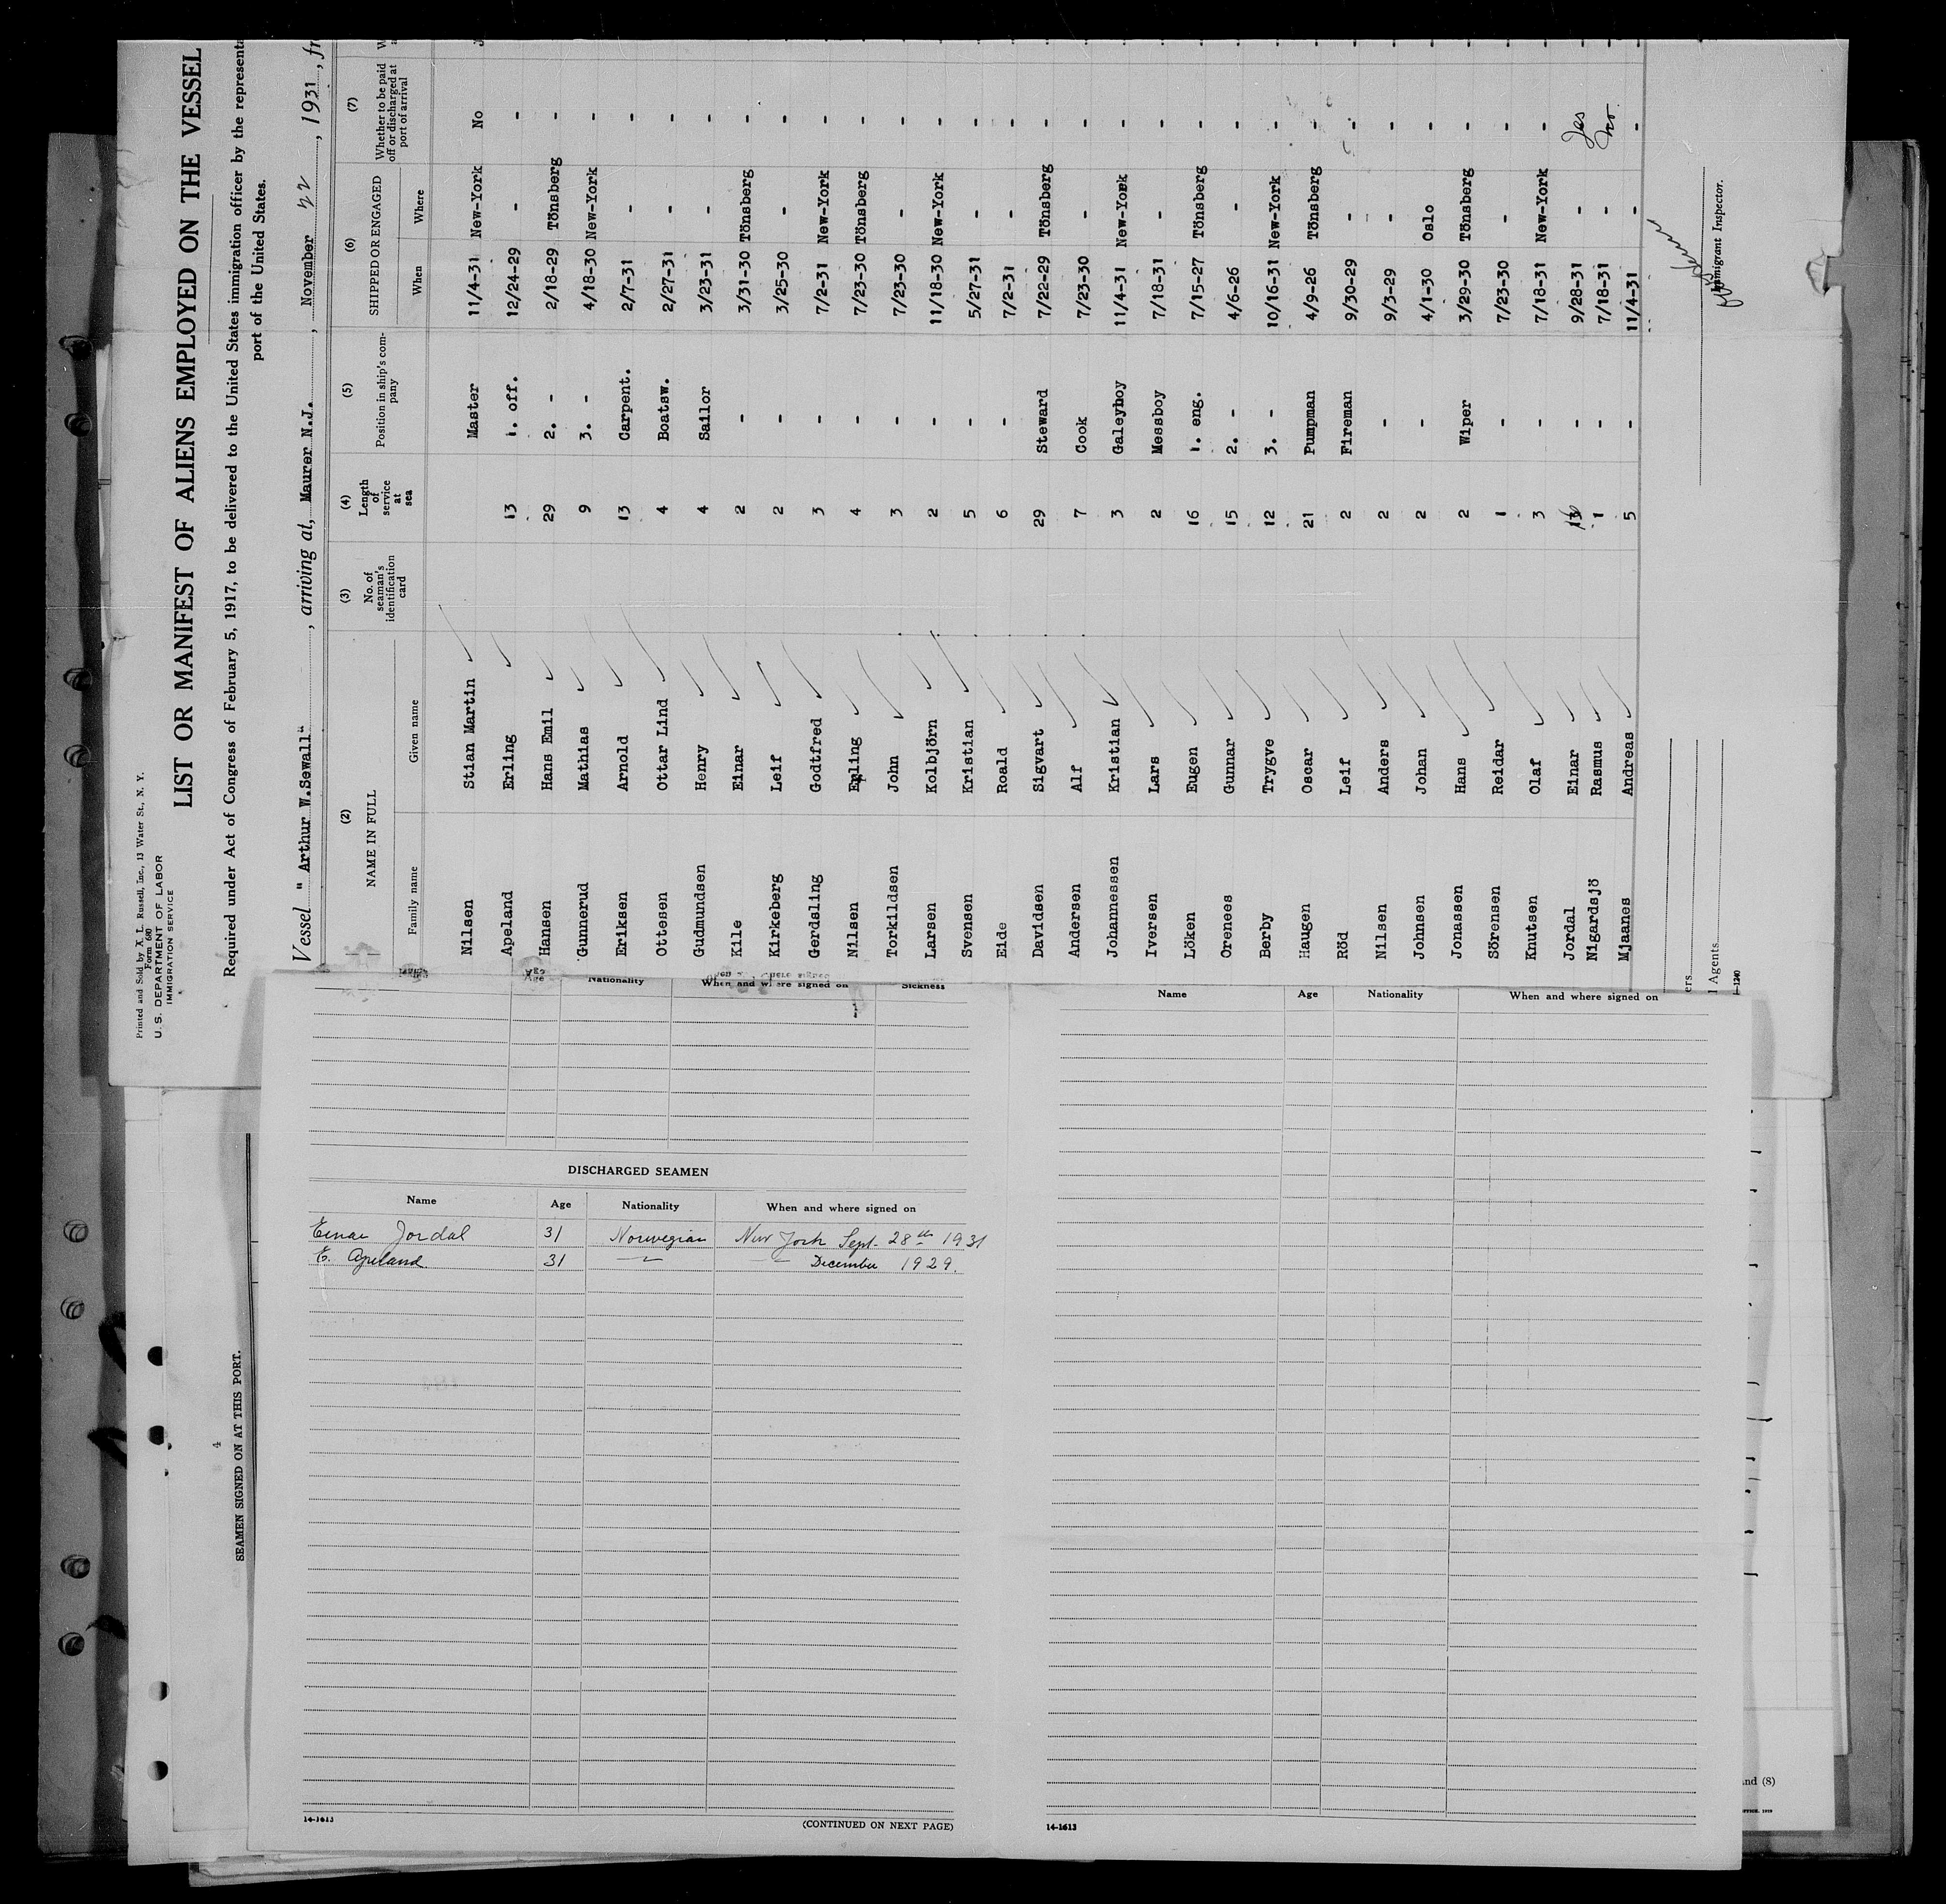 Printed and Sold by X. L. Russell, Inc., 13 Water St., N. Y.
Form 680
U. S. DEPARTMENT OF LABOR
IMMIGRATION SERVICE
LIST OR MANIFEST OF ALIENS EMPLOYED ON THE VESSEL
Required under Act of Congress of February 5, 1917, to be delivered to the United States immigration officer by the
port of the United States.
Vessel "Arthur W.Sewall", arriving at, Maurer N.J., November 22, 1931,
(2) (3) (4) (5) (6) (7)
NAME IN FULL No. of seaman's identification card Length of service at sea Position in ship's company SHIPPED OR ENGAGED Whether to be paid off or discharged at port of arrival
Family name Given name When Where
Nilsen Stian Martin Master 11/4-31 New-York No
Apeland Erling 13 1. off. 12/24-29 - -
Hansen Hans Emil 29 2. - 2/18-29 Tönsberg -
Gunnerud Mathias 9 3. - 4/18-30 New-York -
Eriksen Arnold 13 Carpent. 2/7-31 - -
Ottesen Ottar Lind 4 Boatsw. 2/27-31 - -
Gudmundsen Henry 4 Sailor 3/23-31 - -
Kile Einar 2 - 3/31-30 Tönsberg -
Kirkeberg Leif 2 - 3/25-30 - -
Gerdsling Godtfred 3 - 7/2-31 New-York -
Nilsen Erling 4 - 7/23-30 Tönsberg -
Torkildsen John 3 - 7/23-30 - -
Larsen Kolbjörn 2 - 11/18-30 New-York -
Svensen Kristian 5 - 5/27-31 - -
Eide Roald 6 - 7/2-31 - -
Davidsen Sigvart 29 Steward 7/22-29 Tönsberg -
Andersen Alf 7 Cook 7/23-30 - -
Johannessen Kristian 3 Galeyboy 11/4-31 New-York -
Iversen Lars 2 Messboy 7/18-31 - -
Löken Eugen 16 1. eng. 7/15-27 Tönsberg -
Orenees Gunnar 15 2. - 4/6-26 - -
Berby Trygve 12 3. - 10/16-31 New-York -
Haugen Oscar 21 Pumpman 4/9-26 Tönsberg -
Röd Leif 2 Fireman 9/30-29 - -
Nilsen Anders 2 - 9/3-29 - -
Johnsen Johan 2 - 4/1-30 Oslo -
Jonassen Hans 2 Wiper 3/29-30 Tönsberg -
Sörensen Reidar 1 - 7/23-30 - -
Knutsen Olaf 3 - 7/18-31 New-York -
Jordal Einar - 9/28-31 - Yes
Nigardsjö Rasmus 1 - 7/18-31 - No
Mjaanes Andreas 5 - 11/4-31 - -
Immigrant Inspector.
Age Nationality When and where signed on Sickness
DISCHARGED SEAMEN
Name Age Nationality When and where signed on
Einar Jordal 31 Norwegian New York Sept. 28th 1931
E. Apeland 31 -"- -"- December 1929.
14-1613
(CONTINUED ON NEXT PAGE)
Name Age Nationality When and where signed on
14-1613
4
SEAMEN SIGNED ON AT THIS PORT.
and (8)